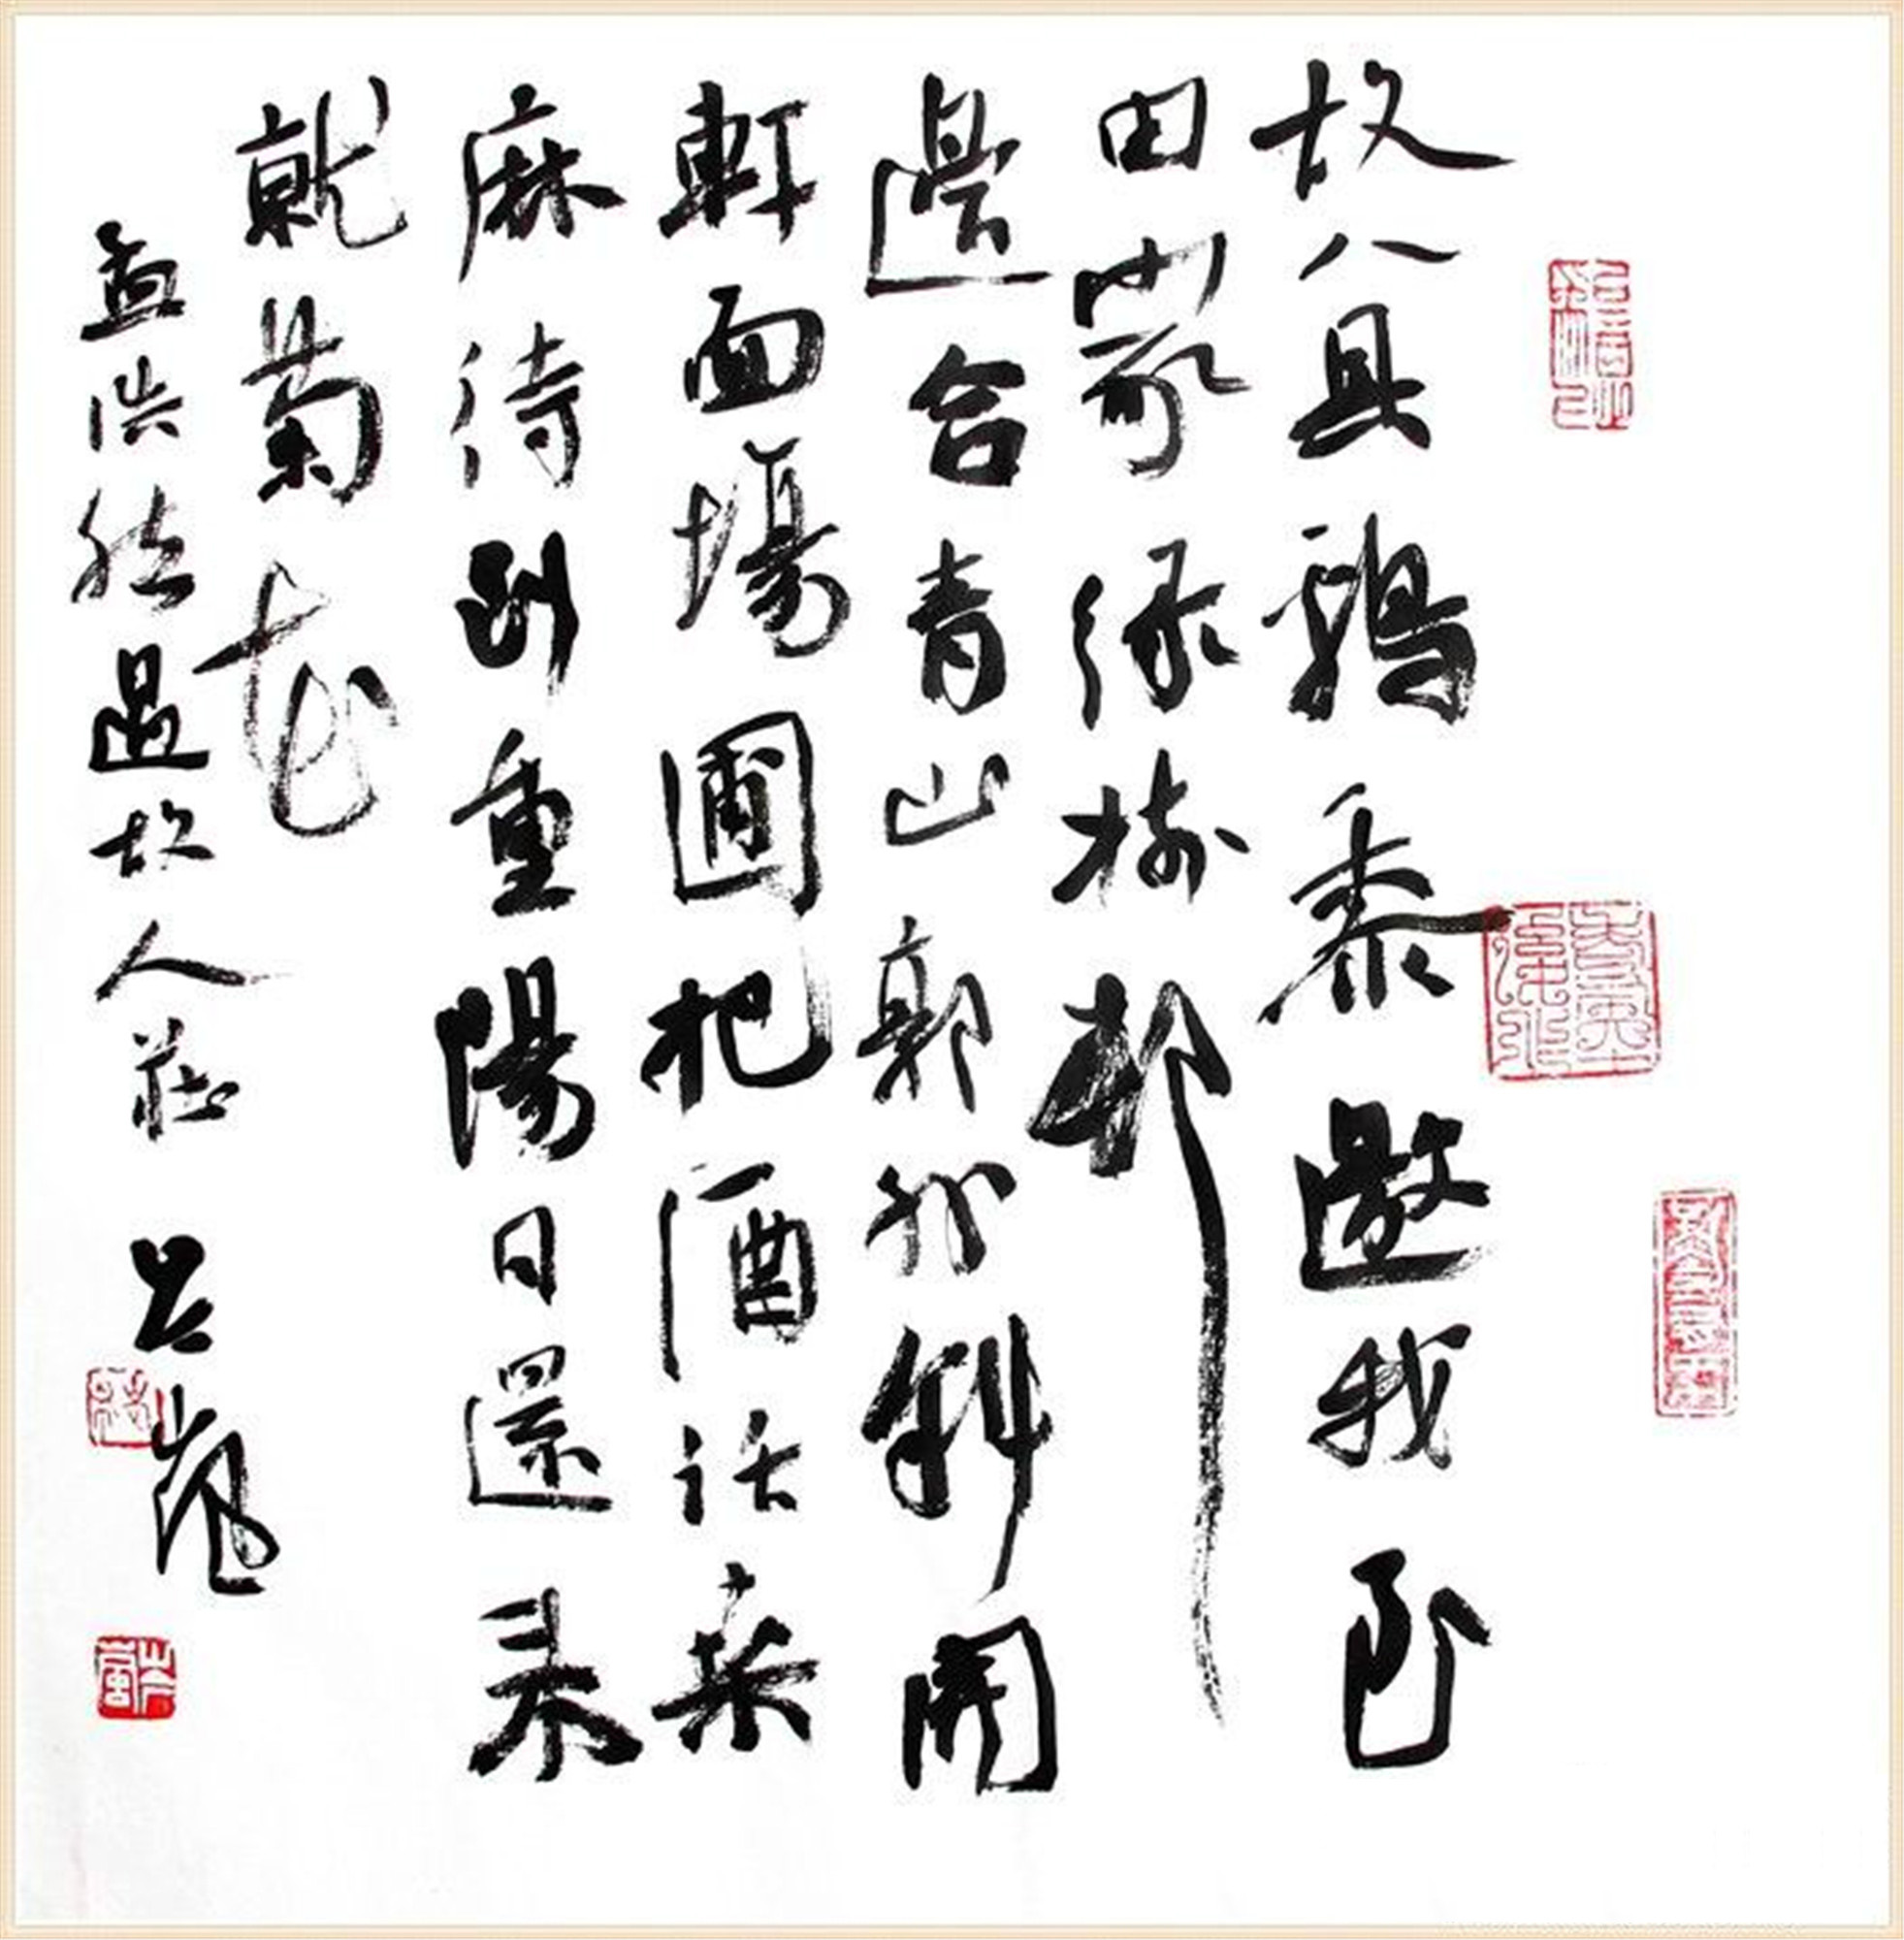 故人具鷄黍邀我至
田家绿樹村
邊合青山郭外斜開
軒面場圃把酒話桑
麻待到重陽日還来
就菊花
孟浩然過故人莊 吕嵐